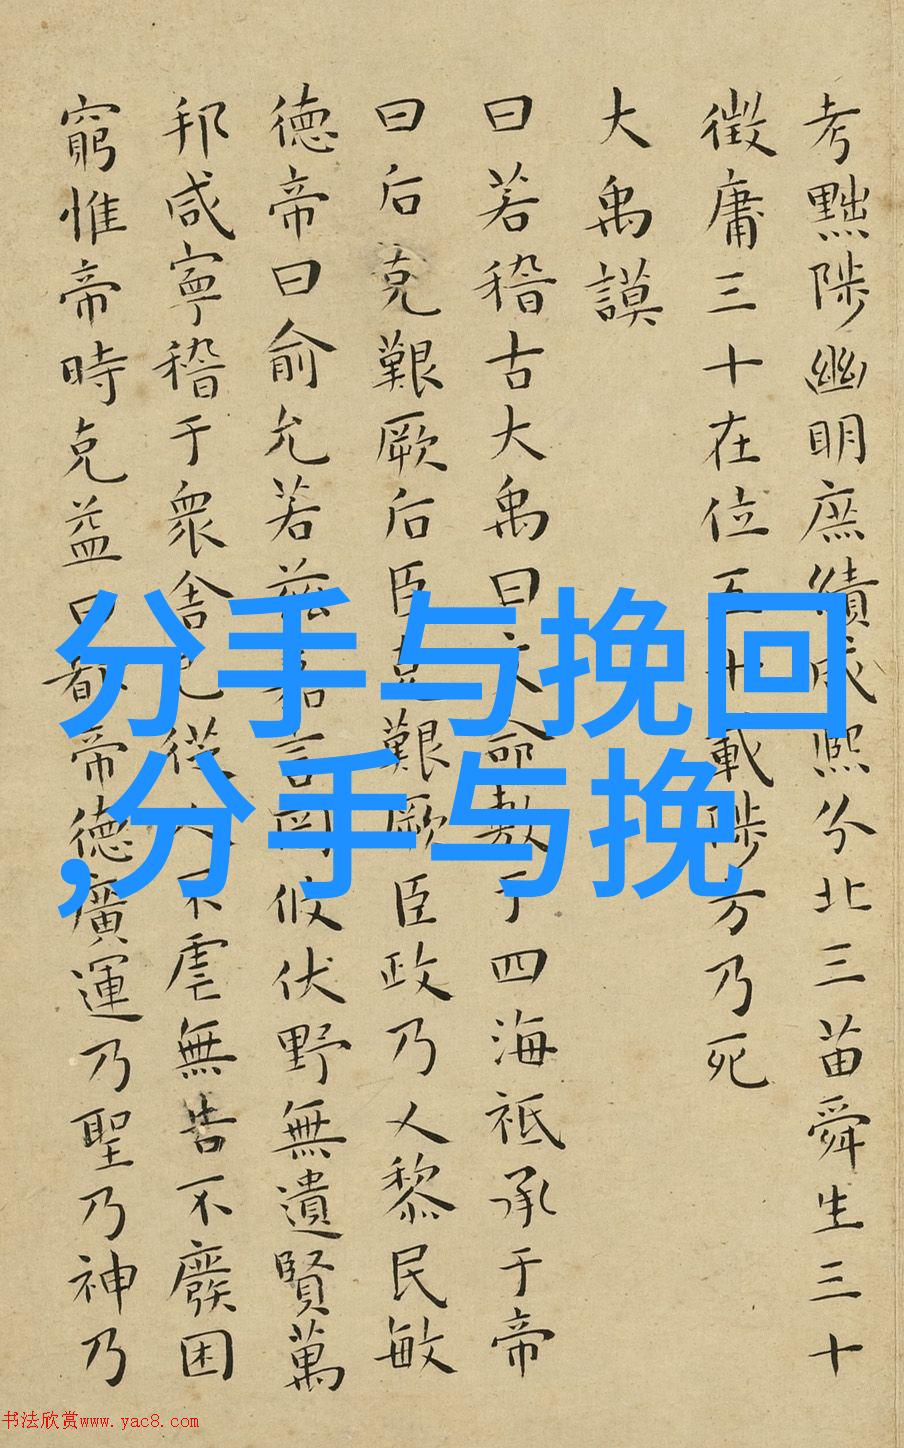 考黜陟幽明庶績咸熙分北三苗舜生三十
徵庸三十在位五十載陟方乃死
大禹謨
曰若稽古大禹曰文命敷于四海祗承于帝
曰后克艱厥后臣克艱厥臣政乃乂黎民敏
德帝曰俞允若茲嘉言罔攸伏野無遺賢萬
邦咸寧稽于衆舍己從人不虐無告不廢困
窮惟帝時克益曰都帝德廣運乃聖乃神乃
分手与挽回
,分手与挽
书法欣赏www.yac8.com